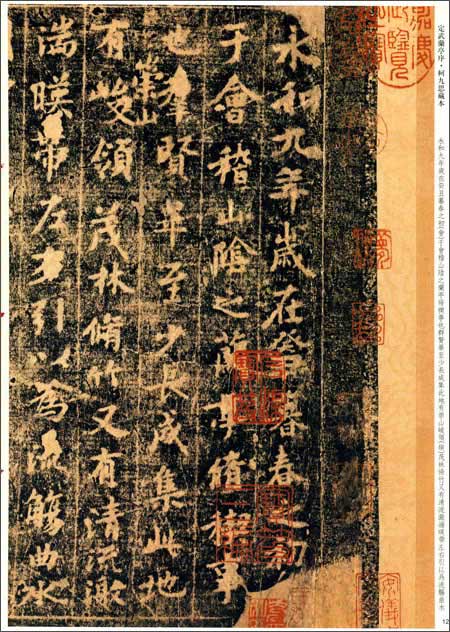 定武蘭亭序·柯九思藏本
永和九年歲在癸丑暮春之初會于會稽山陰之蘭亭脩禊事也群賢畢至少長咸集此地有崇山峻領(嶺)茂林脩竹又有清流激湍暎帶左右引以爲流觴曲水
永和九年歲在癸暮春之初
于會稽山陰之蘭亭脩禊事
賢至少長咸集此地
崇山
有峻領茂林脩竹又有清流激
湍暎帶左右引以爲流觴曲水
12